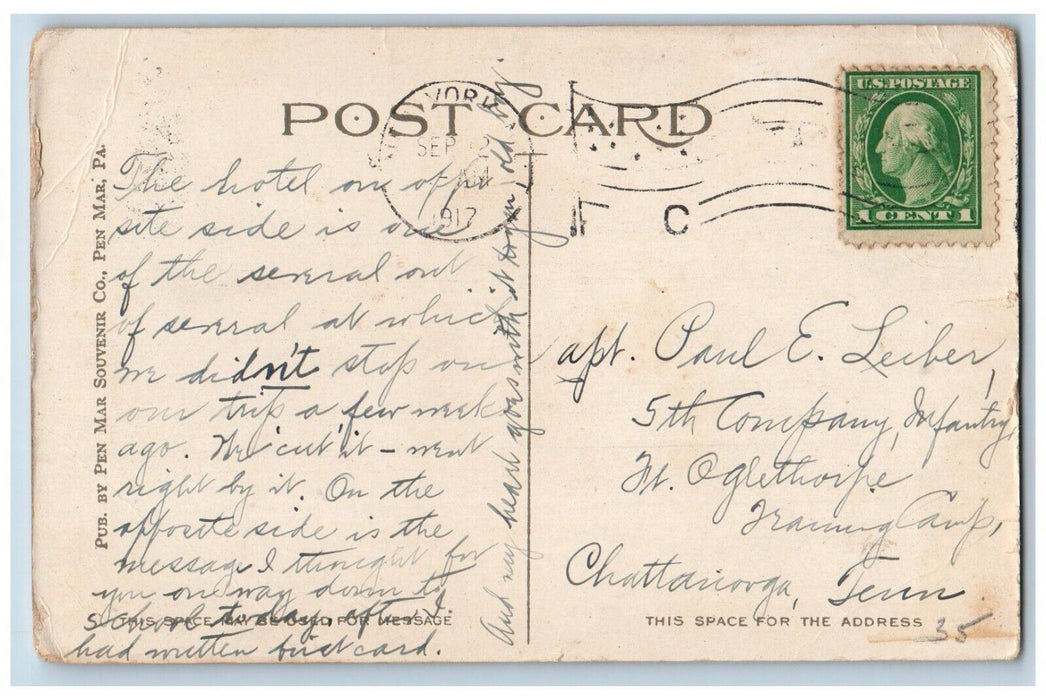 POST CARD
YORK
SEP 12
1917
C
U.S. POSTAGE
1 CENT 1
PUB. BY PEN MAR SOUVENIR CO., PEN MAR, PA.
The hotel on oppo-
site side is one
of the several out
of several at which
we didn't stop on
our trip a few weeks
ago. We 'cut' it - went
right by it. On the
opposite side is the
message I thought for
you on way down to
school today, after I
had written first card.
And my heart goes with it to you old boy.
Capt. Paul E. Leiber,
5th Company, Infantry,
Ft. Oglethorpe
Training Camp,
Chattanooga, Tenn
THIS SPACE MAY BE USED FOR MESSAGE
THIS SPACE FOR THE ADDRESS
35